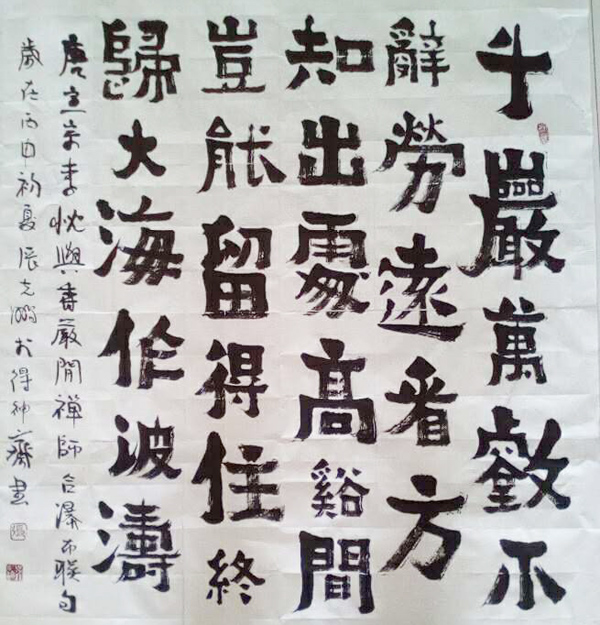 千巖萬壑不
辭勞遠看方
知出處高谿間
豈能留得住終
歸大海作波濤
唐宣宗李忱與香嚴閒禪師合瀑布聯句
歲在丙申初夏於得神齋書